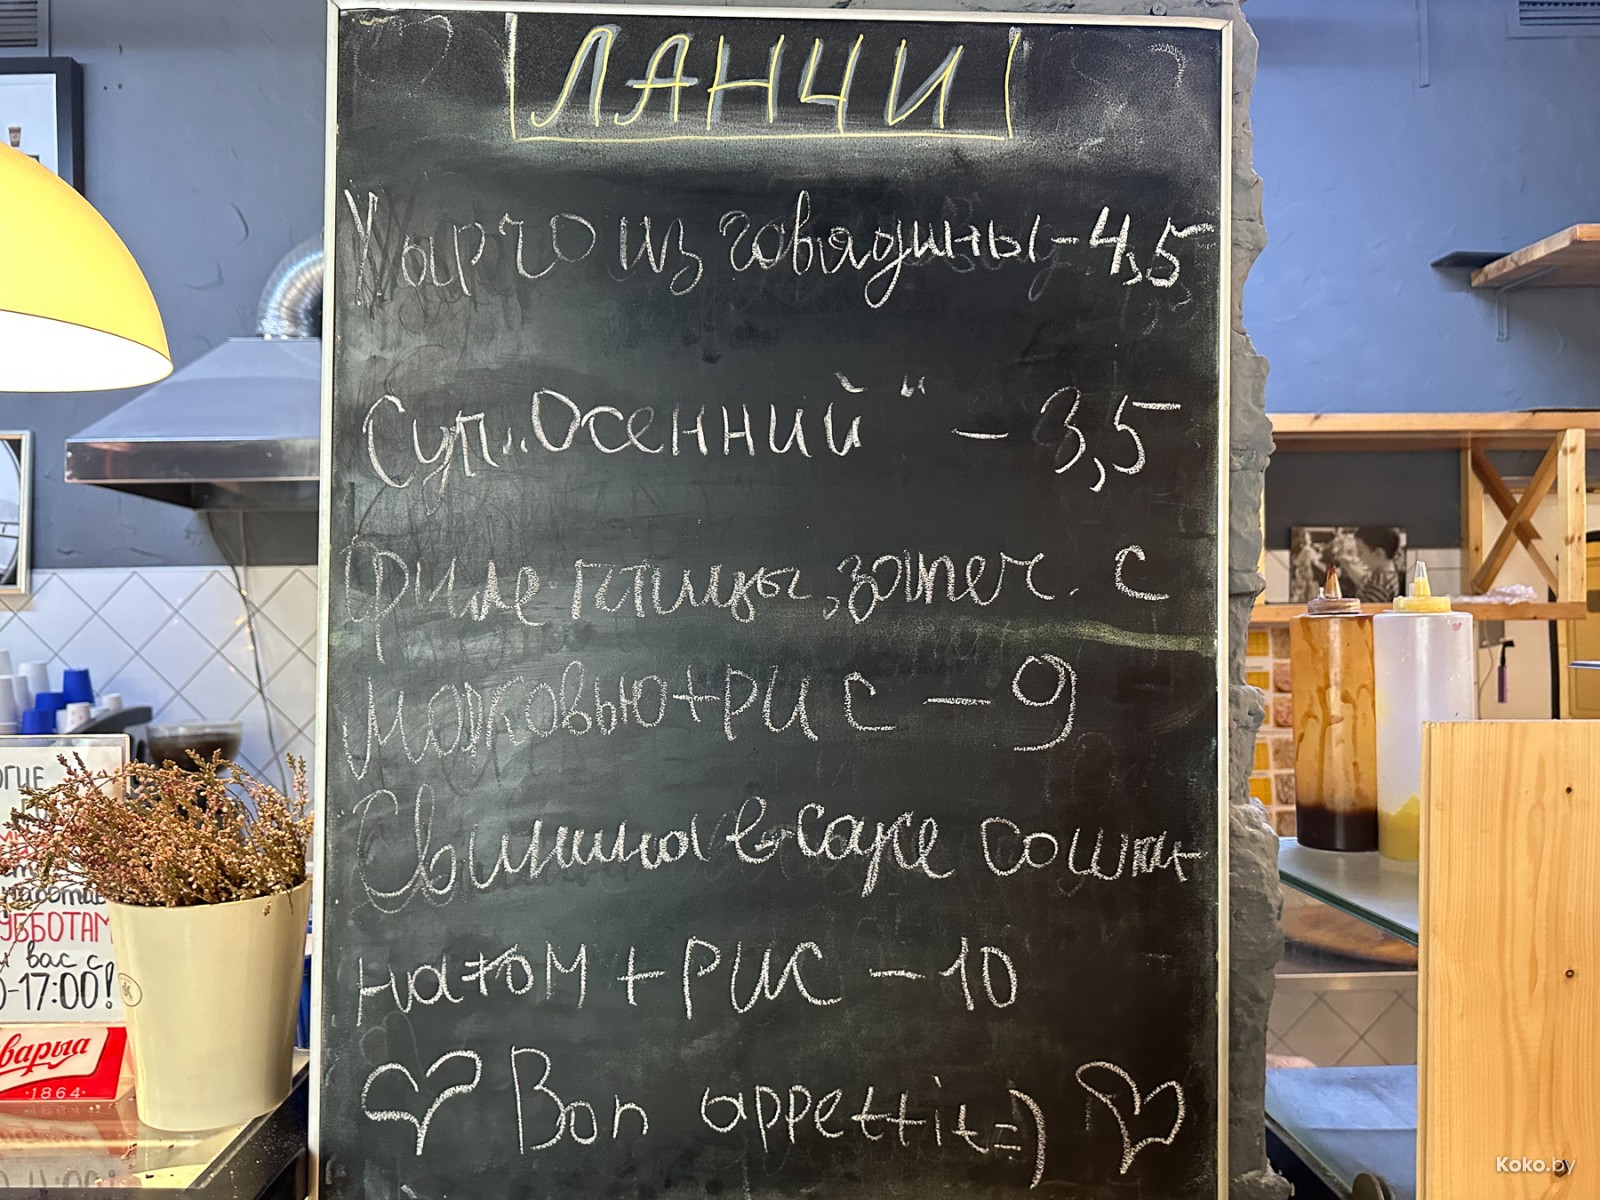 ЛАНЧИ
Харчо из говядины - 4,5
Суп „Осенний“ - 3,5
Филе птицы, запеч. с
морковью + рис - 9
Свинина в соусе со шпи-
натом + рис - 10
Bon appettit =)
СУББОТАМ
вас с
-17:00!
варыа
·1864·
Koko.by